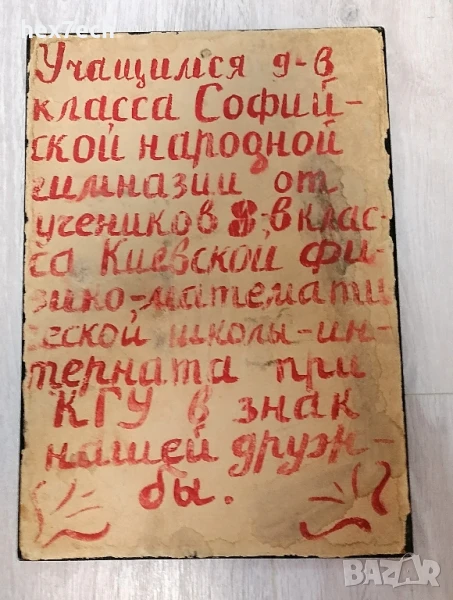 hex7ech
Учащимся 9-в
класса Софий-
ской народной
гимназии от
учеников 8-в клас-
са Киевской фи-
зико-математи
ческой школы-ин-
терната при
КГУ в знак
нашей друж-
бы.
BAZAR